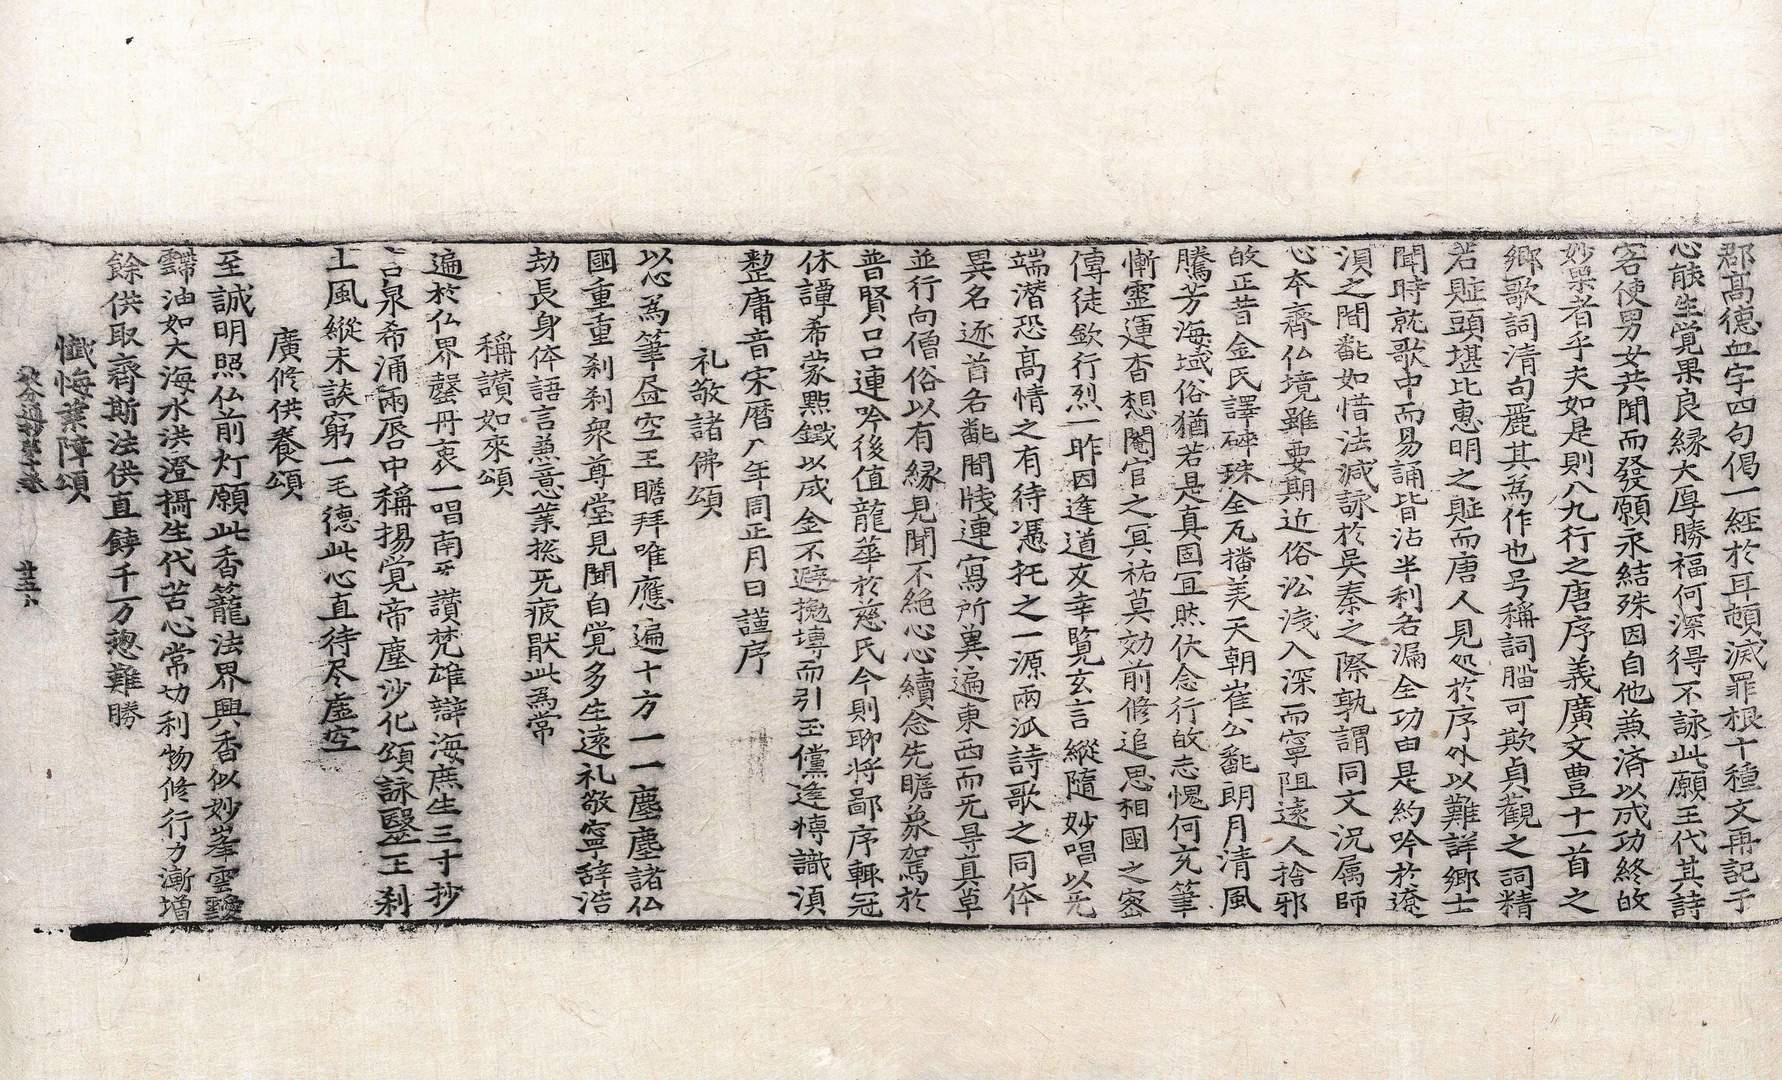 郡高德血字四句偈一經於耳頓滅罪根十種文再記于
心能生覚果良縁大厚勝福何深得不詠此願王代其詩
客使男女共聞而發願永結殊因自他兼済以成功終故
妙果者乎夫如是則八九行之唐序義廣文豊十一首之
郷歌詞清句麗其為作也号稱詞脳可欺貞觀之詞精
若賍頭堪比惠明之賍而唐人見処於序外以難詳郷士
聞時就歌中而易誦皆沾半利各漏全功由是約吟於遼
浿之間飜如惜法減詠於吳秦之際孰謂同文况属師
心本齊仏境雖要期近俗沿淺入深而寧阻遠人捨邪
故正昔金氏譯碎珠全瓦播美天朝崔公飜明月清風
騰芳海域俗猶若是真固冝㷊伏念行故志愧何充筆
慚霊運杳想閹官之冥祐莫効前修追思相國之密
傳徒欽行烈一昨因逢道友幸覽玄言縱随妙唱以无
端潜恐髙情之有待憑托之一源兩㳒詩歌之同体
異名逐首各飜間牋連寫所冀遍東西而无㝵真草
並行向僧俗以有縁見聞不絶心心續念先瞻象駕於
普賢口口連吟後值龍華於慈氏今則聊将鄙序輙冠
休譚希蒙點鐵以成金不避抛塼而引玉儻逢博識湏
整庸音宋曆八年周正月日謹序
礼敬諸佛頌
以心為筆𦘕空王瞻拜唯應遍十方一一塵塵諸仏
國重重刹刹衆尊堂見聞自覚多生遠礼敬寧辞浩
劫長身体語言兼意業揔无疲猒此為常
稱讃如來頌
遍於仏界罄丹衷一唱南无讃梵雄辯海庶生三寸抄
言泉希涌兩唇中稱揚覚帝塵沙化頌詠毉王刹
土風縱未談窮一毛德此心直待尽虚空
廣修供養頌
至誠明照仏前灯願此香籠法界興香似妙峯雲靉
靆油如大海水洪澄攝生代苦心常切利物修行力漸増
餘供取齊斯法供直饒千万惣難勝
懺悔業障頌